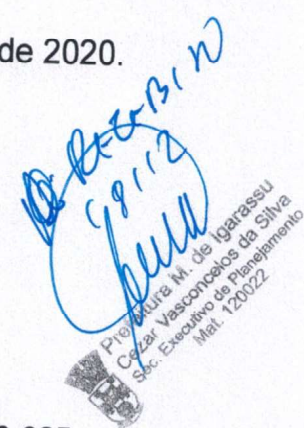 de 2020.
18112
Prefeitura M. de Igarassu
Cezar Vasconcelos da Silva
Sec. Executivo de Planejamento
Mat. 120022